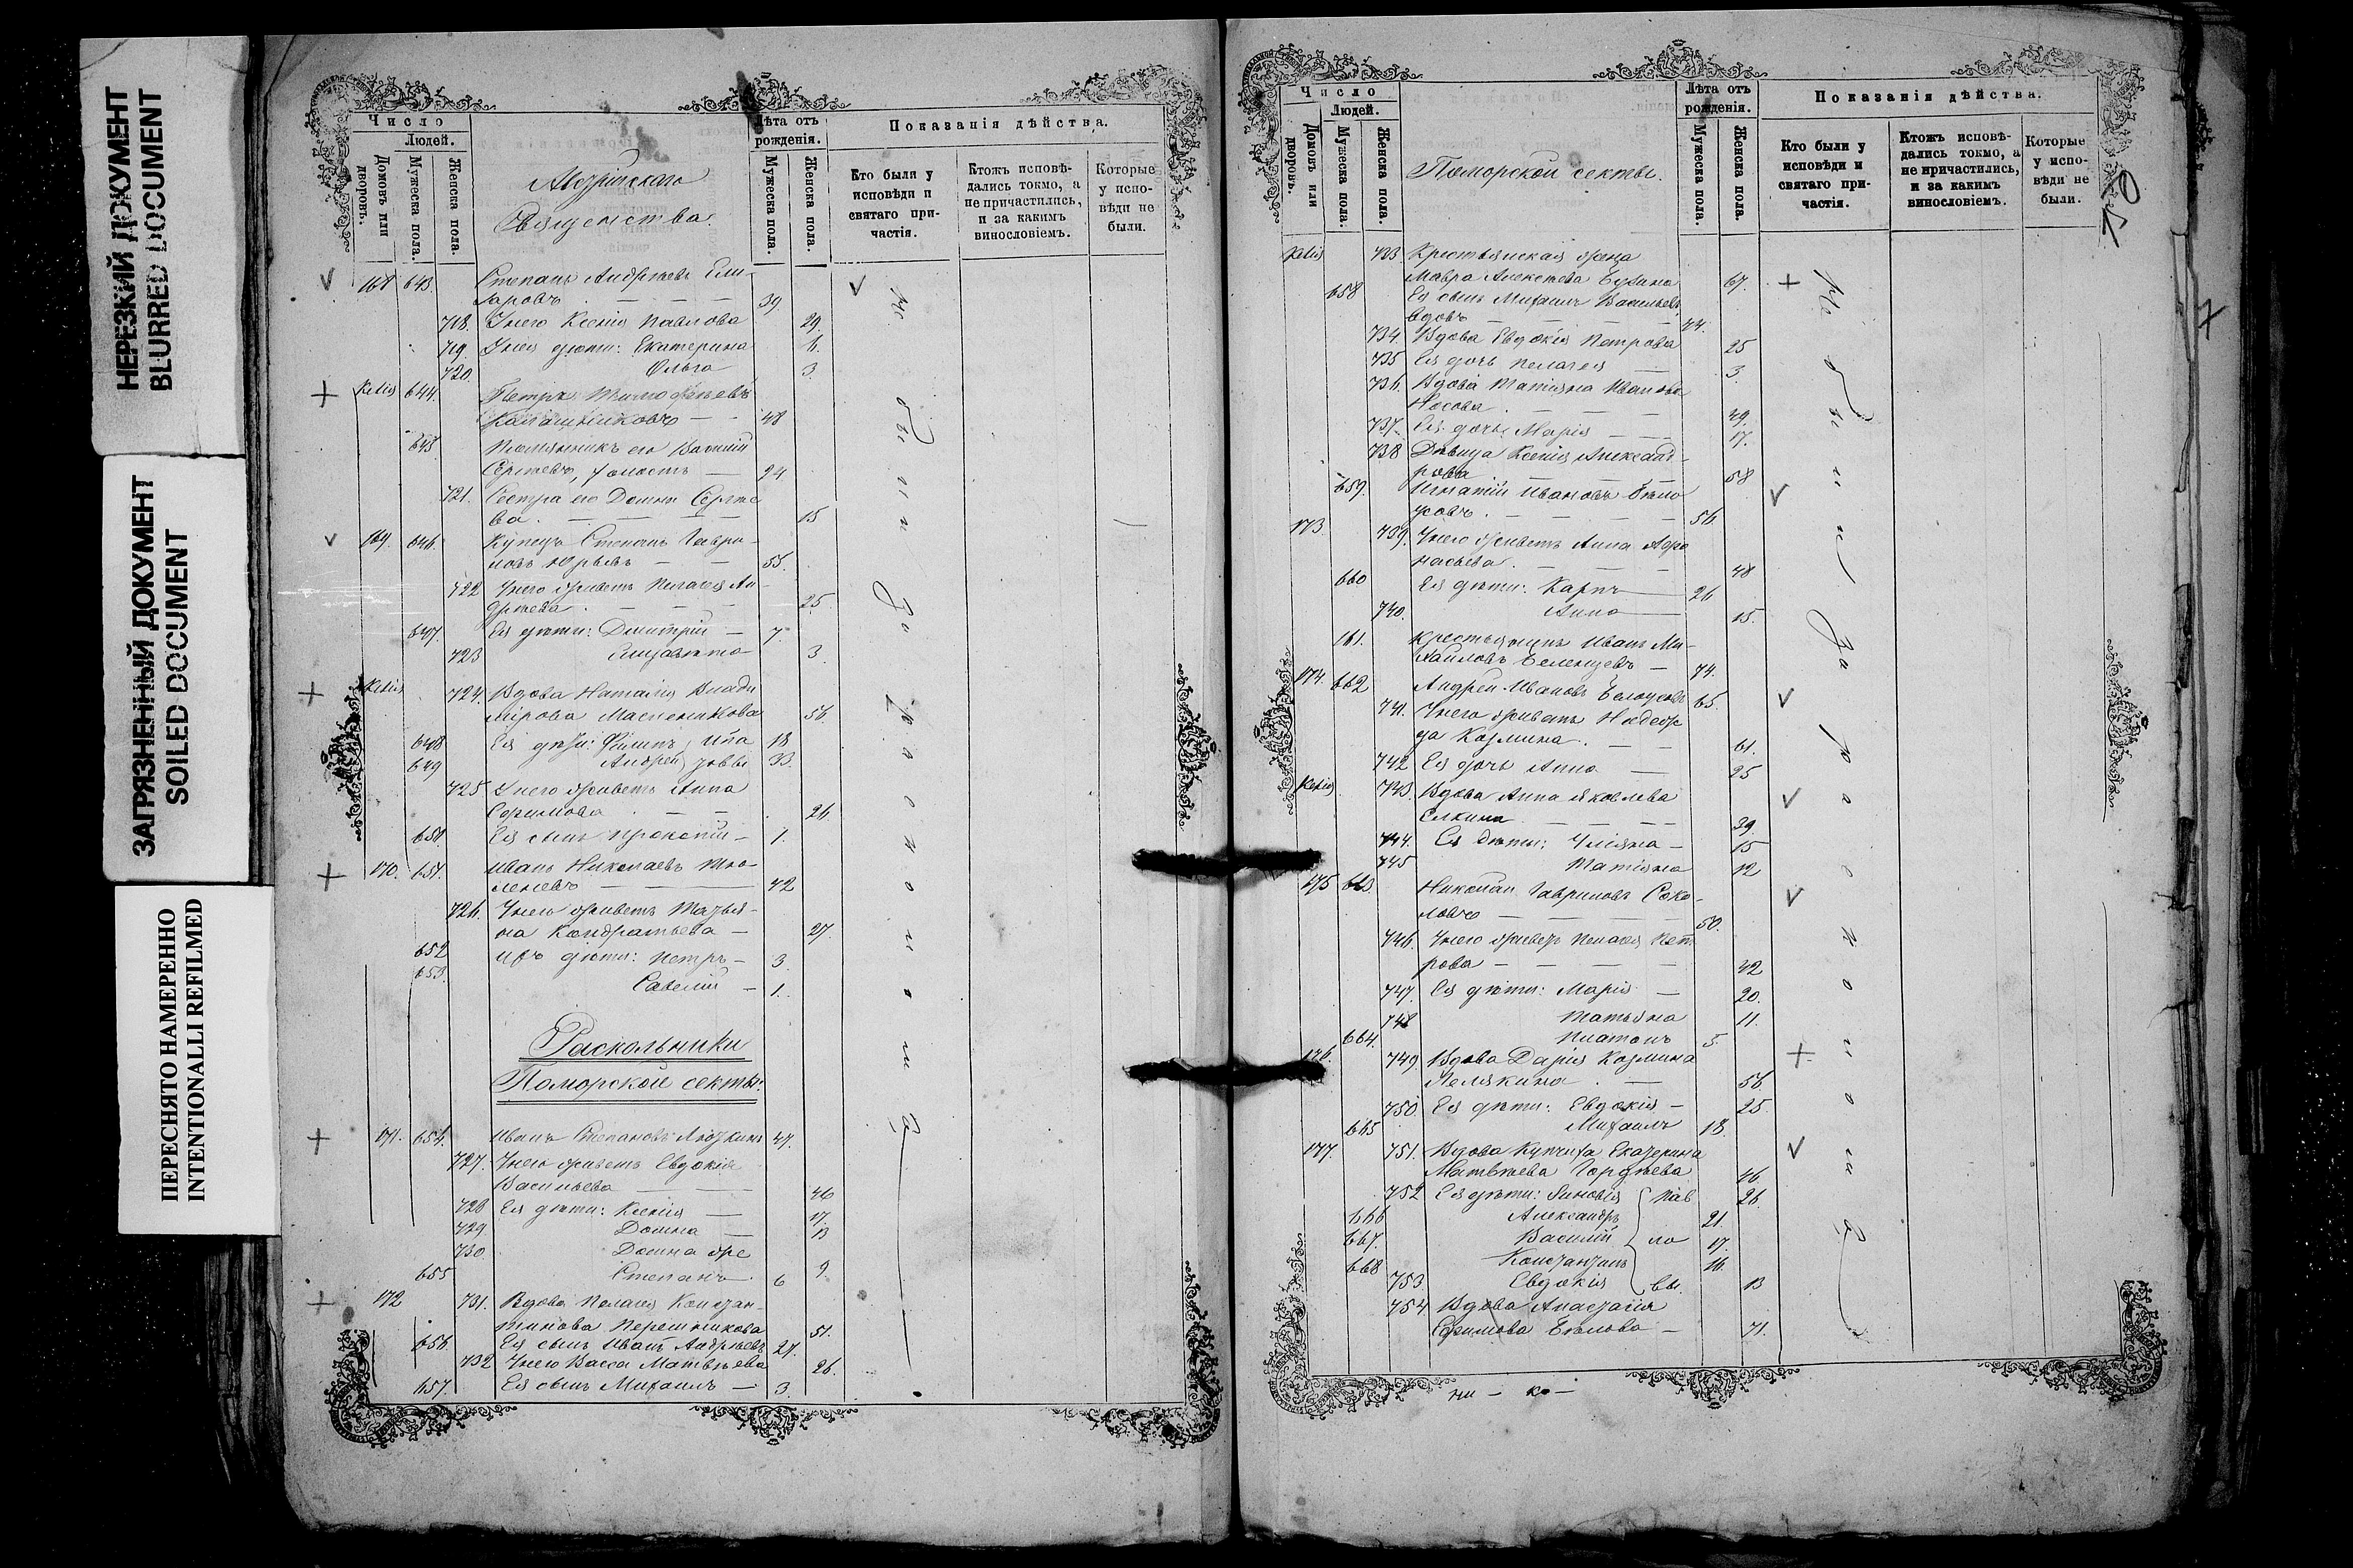 НЕРЕЗКИЙ ДОКУМЕНТ
BLURRED DOCUMENT
ЗАГРЯЗНЕННЫЙ ДОКУМЕНТ
SOILED DOCUMENT
ПЕРЕСНЯТО НАМЕРЕННО
INTENTIONALLI REFILMED
Число
Людей.
Домовъ или дворовъ.
Мужеска пола.
Женска пола.
Австрійскаго
Священства.
Лѣта отъ рожденія.
Мужеска пола.
Женска пола.
Показанія дѣйства.
Кто были у исповѣди и святаго причастія.
Ктожъ исповѣдались токмо, а не причастились, и за какимъ винословіемъ.
Которые у исповѣди не были.
168 643. Степанъ Андреевъ Ели-
заровъ 39
718. У него Ксенія Павлова 29.
719. У нея дѣти: Екатерина 6.
720. Ольга 3.
Келія 644. Петръ Тимофеевъ
Калашниковъ 48
645 Племянникъ его Василій
Сергѣевъ, холостъ 24
721. Сестра его Домна Сергѣе
ва. 15
169. 646. Купецъ Степанъ Гаври-
ловъ Юрьевъ 55.
722 У него живетъ Пелагея Ан-
дреева. 25
647. Ея дѣти: Димитрій 7.
723 Елизавета 3.
Келія 724. Вдова Наталія Влади
мірова Масленикова 56.
648 Ея дѣти: Филипъ 18
649 Андрей 33.
725 У него живетъ Анна
Ефимова 26.
Ея сынъ Прокопій 1.
170. 651. Иванъ Николаевъ
42
726. У него живетъ Татья-
на Кондратьева 27.
652 Ихъ дѣти: Петръ 3.
653. Савелій 1.
Раскольники
Поморской секты:
171. 654. Иванъ Степановъ 47.
727. У него живетъ Евдокія
Васильева 46
728 Ея дѣти: Ксенія 17.
729 Домна 13
730 Домна же 9
655 Степанъ 6
172 731. Вдова Пелагія Констан-
тинова Перешникова 51.
656. Ея сынъ Иванъ Андреевъ 27.
732 У него Васса Матвѣева 26.
657. Ея сынъ Михаилъ 3.
Не были за расколомъ
Число
Людей.
Домовъ или дворовъ.
Мужеска пола.
Женска пола.
Поморской секты.
Лѣта отъ рожденія.
Мужеска пола.
Женска пола.
Показанія дѣйства.
Кто были у исповѣди и святаго причастія.
Ктожъ исповѣдались токмо, а не причастились, и за какимъ винословіемъ.
Которые у исповѣди не были.
Келія 733 Крестьянская жена
Мавра Алексѣева 67.
658 Ея сынъ Михаилъ Васильевъ,
вдовъ 44.
734. Вдова Евдокія Петрова 25
735 Ея дочь Пелагея 3.
736. Вдова Татіяна Иванова
Носова 49.
737. Ея дочь Марія 17.
738 Дѣвица Ксенія Александ-
рова 58
659. Игнатій Ивановъ Бѣло
усовъ. 56.
173 739. У него живетъ Анна Афо
насьева. 48
660 Ея дѣти: Карпъ 26
740. Анна 15.
161. Крестьянинъ Иванъ Ми-
хайловъ 74.
174. 662 Андрей Ивановъ Бѣлоусовъ 65.
741. У него живетъ Надеж
да Козмина. 61.
742 Ея дочь Анна 25
Келія 743. Вдова Анна Яковлева
Елкина 39.
744. Ея дѣти: Ульяна 15
745 Татіяна 12
175 663 Николай Гавриловъ Соко-
ловъ 50.
746. У него живетъ Пелагея Пет
рова 42
747. Ея дѣти: Марія 20.
748 Татьяна 11.
664. Платонъ 5.
176. 749. Вдова Дарія Козмина
56.
750. Ея дѣти: Евдокія 25.
665 Михаилъ 18.
177. 751. Вдова Купчиха Екатерина
Матвѣева Гордѣева 46.
752 Ея дѣти: Зиновія 26.
666 Александръ 21.
667. Василій 17.
668 Константинъ 16.
753 Евдокія 13
Пав
ло
вы.
754 Вдова Анастасія
Ефимова Бѣлова 71.
Не были за расколомъ
ни — ко —